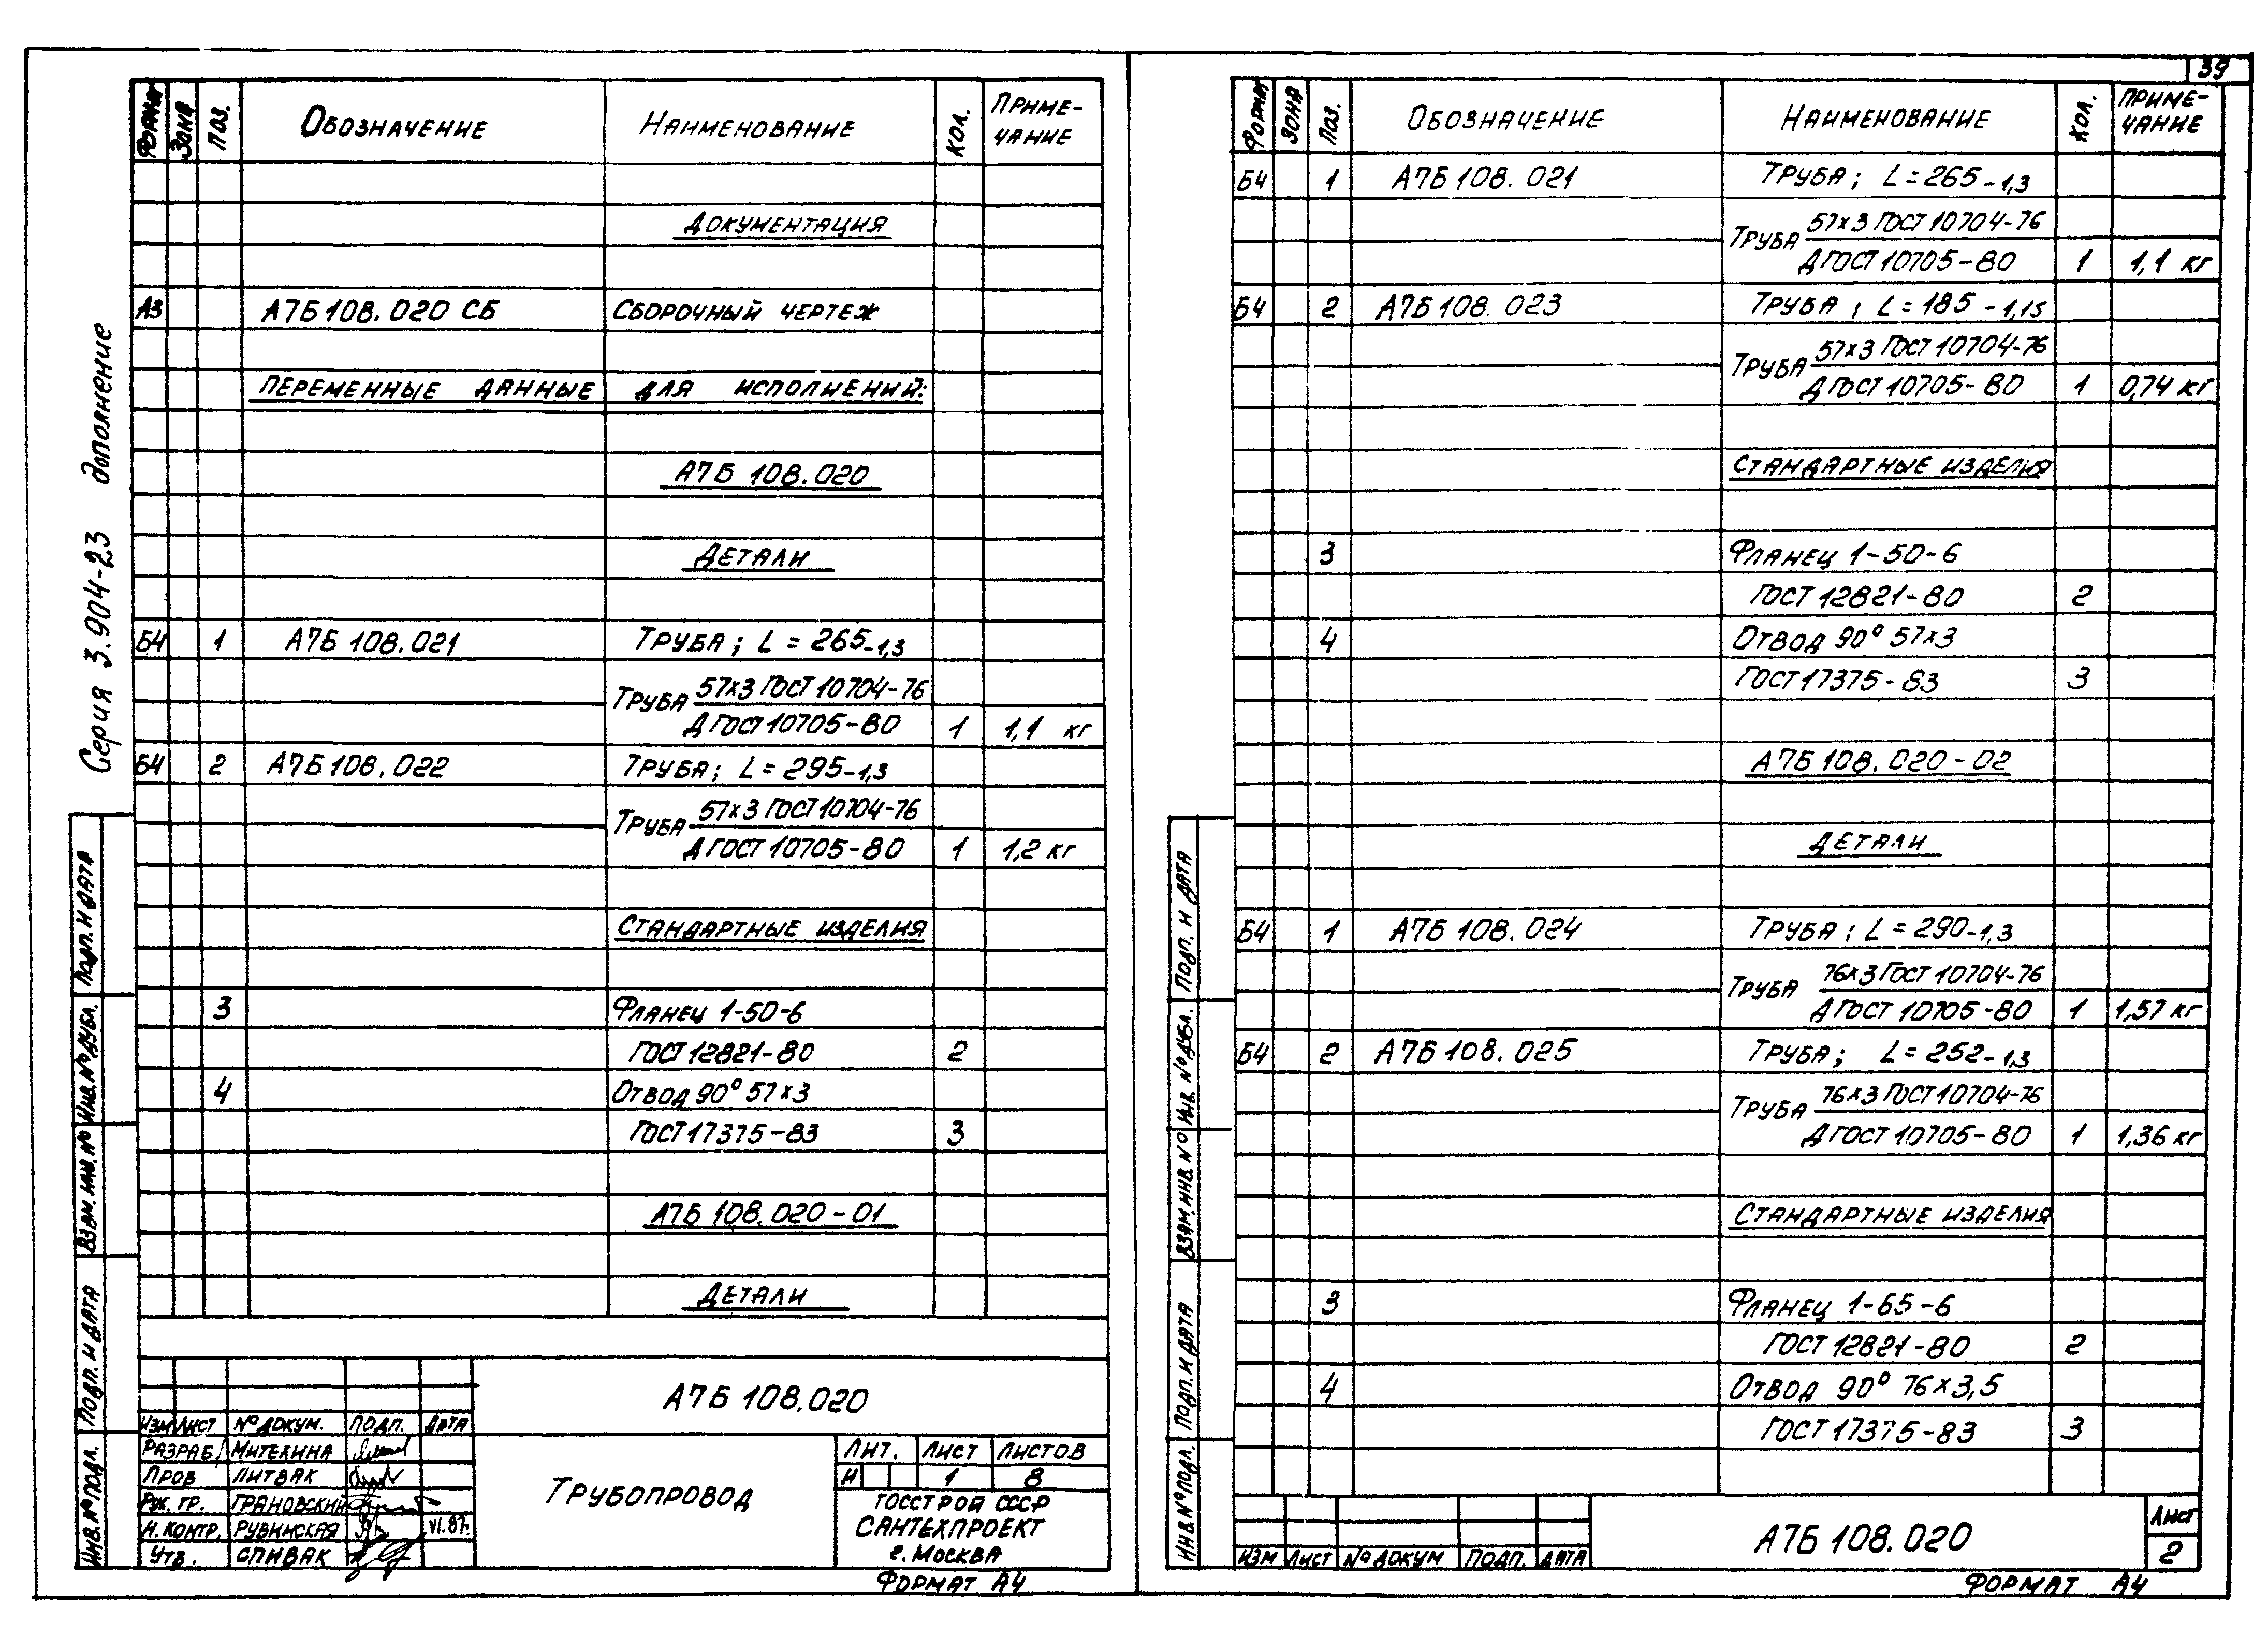 39
Серия 3.904-23 дополнение
Формат Зона Поз. Обозначение Наименование Кол. Примечание
Документация
А3 А7Б 108.020 СБ Сборочный чертеж
Переменные данные для исполнений:
А7Б 108.020
Детали
Б4 1 А7Б 108.021 Труба; L = 265-1,3
Труба 57х3 ГОСТ 10704-76
Д ГОСТ 10705-80 1 1,1 кг
Б4 2 А7Б 108.022 Труба; L = 295-1,3
Труба 57х3 ГОСТ 10704-76
Д ГОСТ 10705-80 1 1,2 кг
Стандартные изделия
3 Фланец 1-50-6
ГОСТ 12821-80 2
4 Отвод 90° 57х3
ГОСТ 17375-83 3
А7Б 108.020-01
Детали
А7Б 108.020
Изм Лист № докум. Подп. Дата
Разраб. Митехина
Пров Литвак
Рук. гр. Грановский
Н. контр. Рувинская VI.87г.
Утв. Спивак
Трубопровод
Лит. Лист Листов
И 1 8
Госстрой СССР
Сантехпроект
г. Москва
Формат А4
Инв. № подл. Подп. и дата Взам. инв. № Инв. № дубл. Подп. и дата
Формат Зона Поз. Обозначение Наименование Кол. Примечание
Б4 1 А7Б 108.021 Труба; L = 265-1,3
Труба 57х3 ГОСТ 10704-76
Д ГОСТ 10705-80 1 1,1 кг
Б4 2 А7Б 108.023 Труба; L = 185-1,15
Труба 57х3 ГОСТ 10704-76
Д ГОСТ 10705-80 1 0,74 кг
Стандартные изделия
3 Фланец 1-50-6
ГОСТ 12821-80 2
4 Отвод 90° 57х3
ГОСТ 17375-83 3
А7Б 108.020-02
Детали
Б4 1 А7Б 108.024 Труба; L = 290-1,3
Труба 76х3 ГОСТ 10704-76
Д ГОСТ 10705-80 1 1,57 кг
Б4 2 А7Б 108.025 Труба; L = 252-1,3
Труба 76х3 ГОСТ 10704-76
Д ГОСТ 10705-80 1 1,36 кг
Стандартные изделия
3 Фланец 1-65-6
ГОСТ 12821-80 2
4 Отвод 90° 76х3,5
ГОСТ 17375-83 3
Изм Лист № докум Подп. Дата
А7Б 108.020
Лист
2
Формат А4
Инв. № подл. Подп. и дата Взам. инв. № Инв. № дубл. Подп. и дата